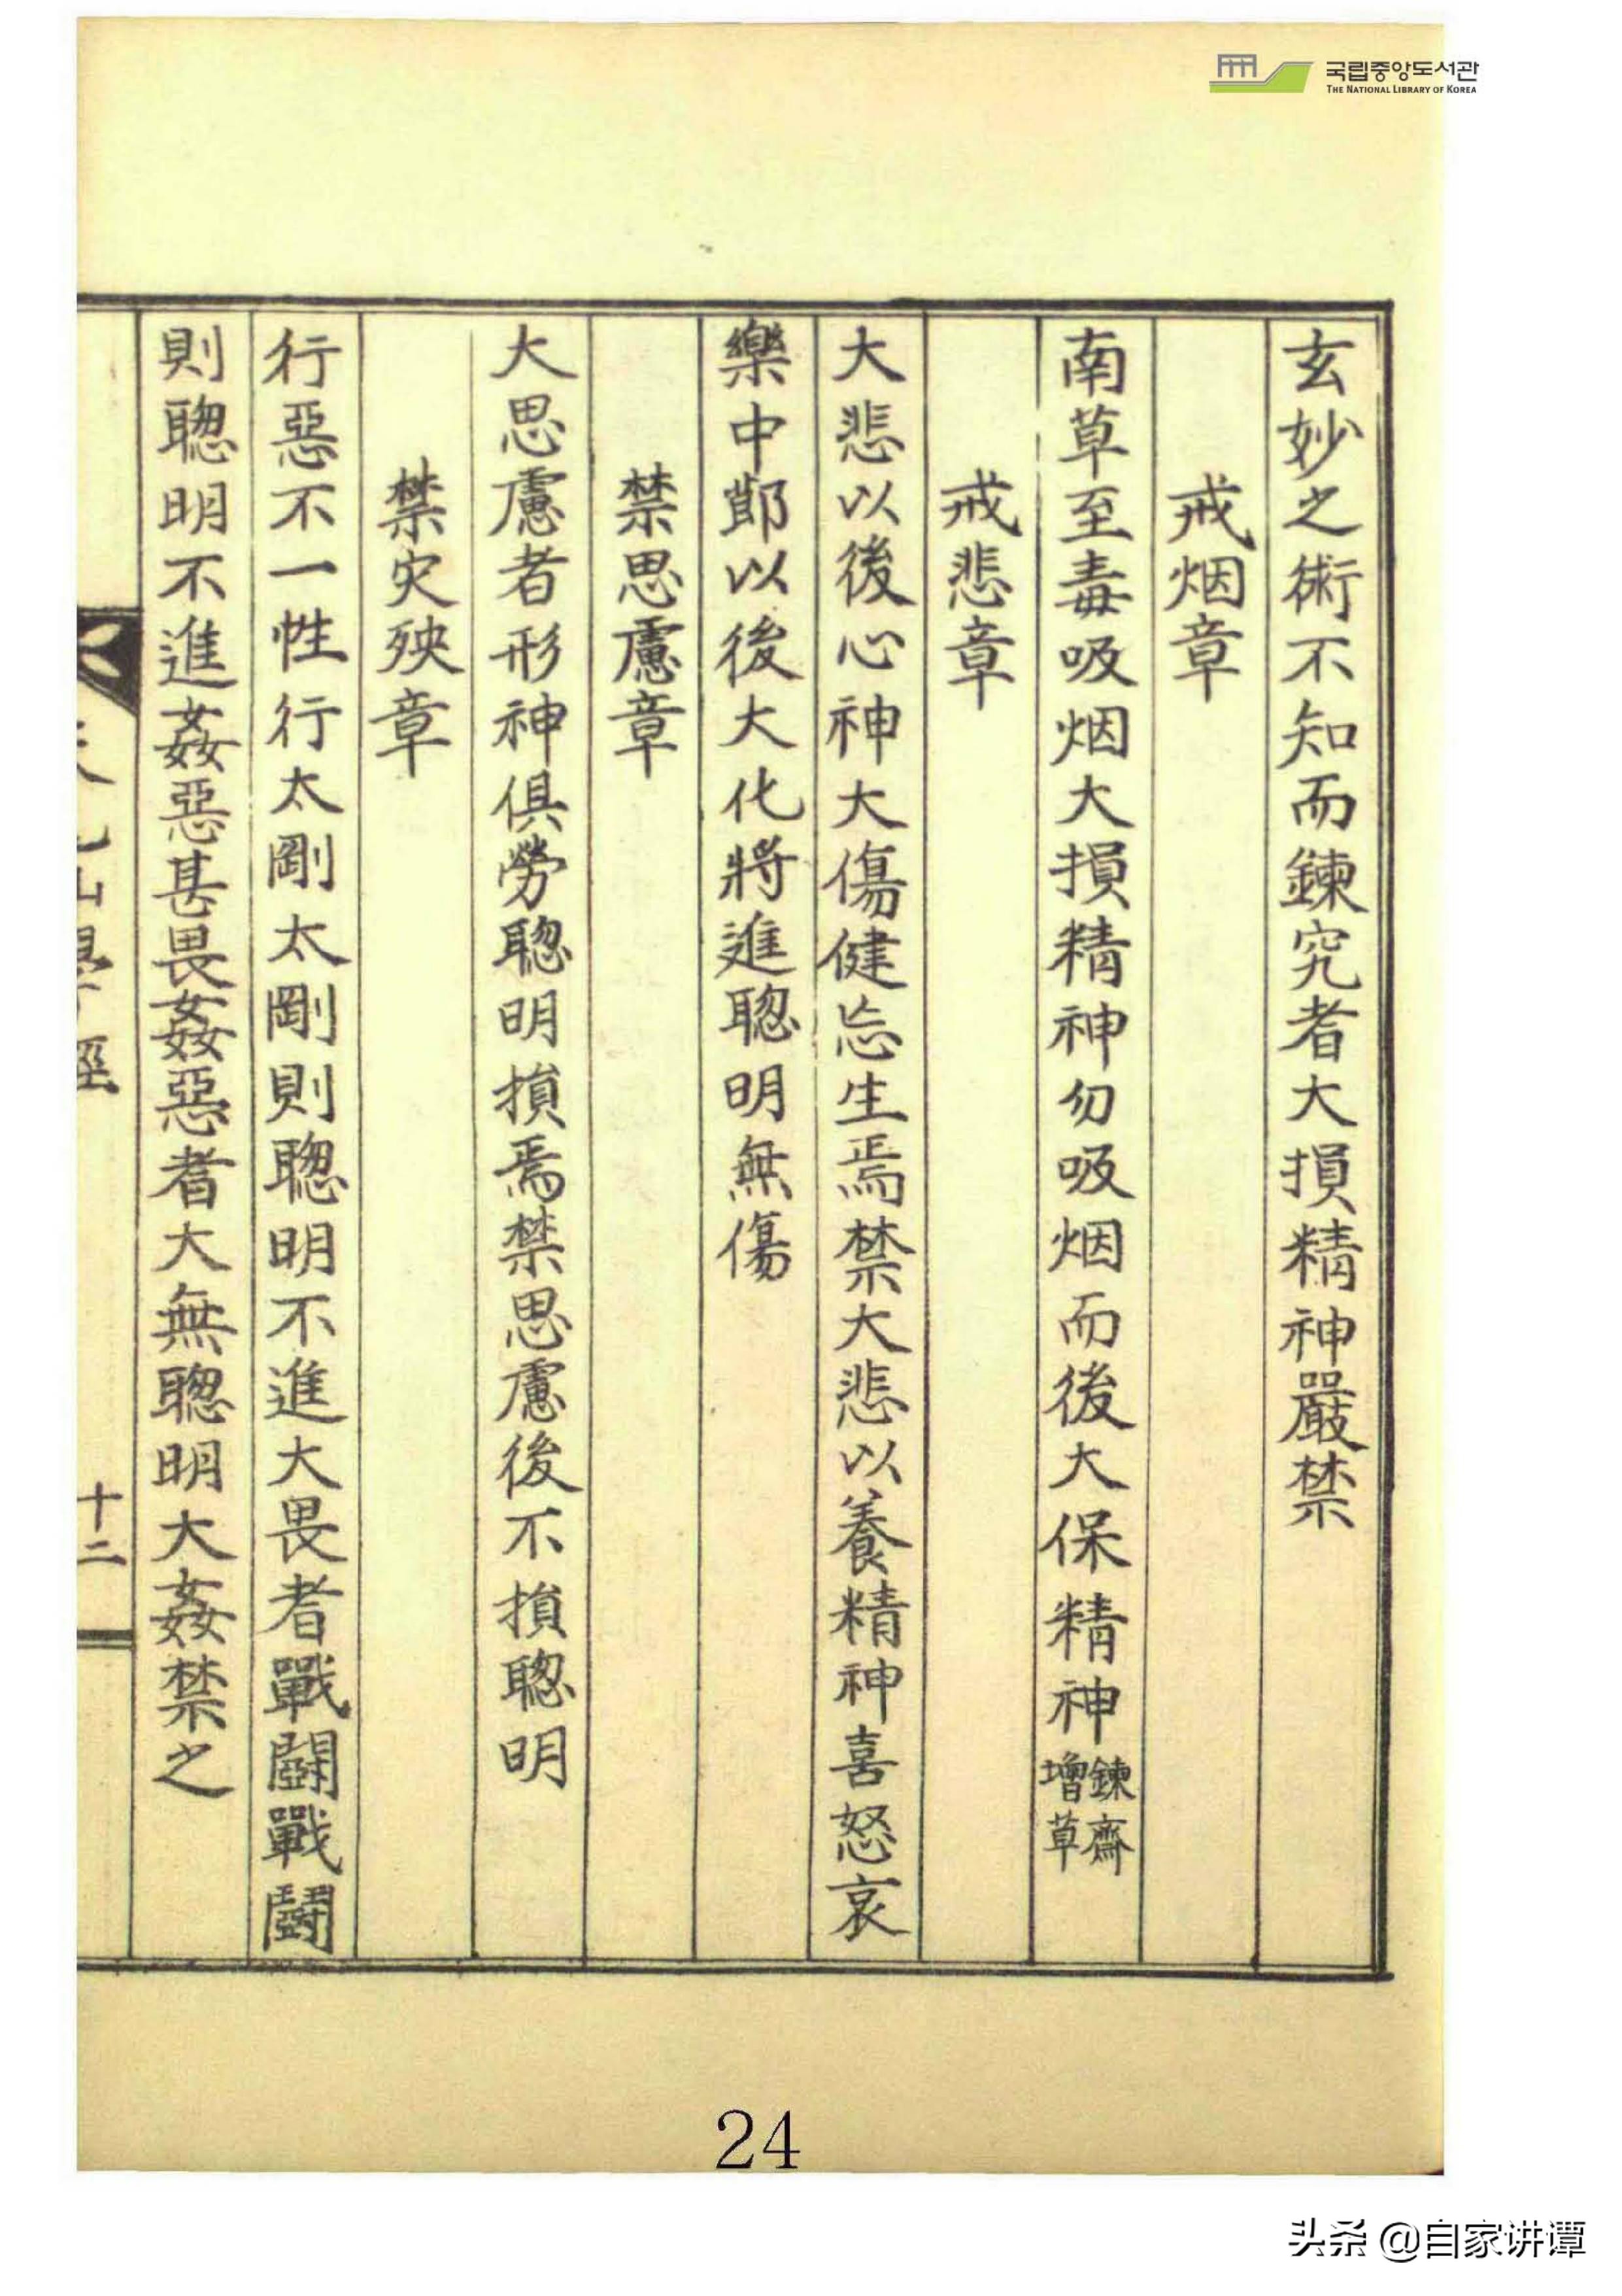 국립중앙도서관
THE NATIONAL LIBRARY OF KOREA
玄妙之術不知而鍊究者大損精神嚴禁
戒烟章
南草至毒吸烟大損精神勿吸烟而後大保精神鍊齋增草
戒悲章
大悲以後心神大傷健忘生焉禁大悲以養精神喜怒哀
樂中節以後大化將進聰明無傷
禁思慮章
大思慮者形神俱勞聰明損焉禁思慮後不損聰明
禁灾殃章
行惡不一性行太剛太剛則聰明不進大畏者戰鬪戰鬪
則聰明不進姦惡甚畏姦惡者大無聰明大姦禁之
十二
24
头条 @自家讲谭